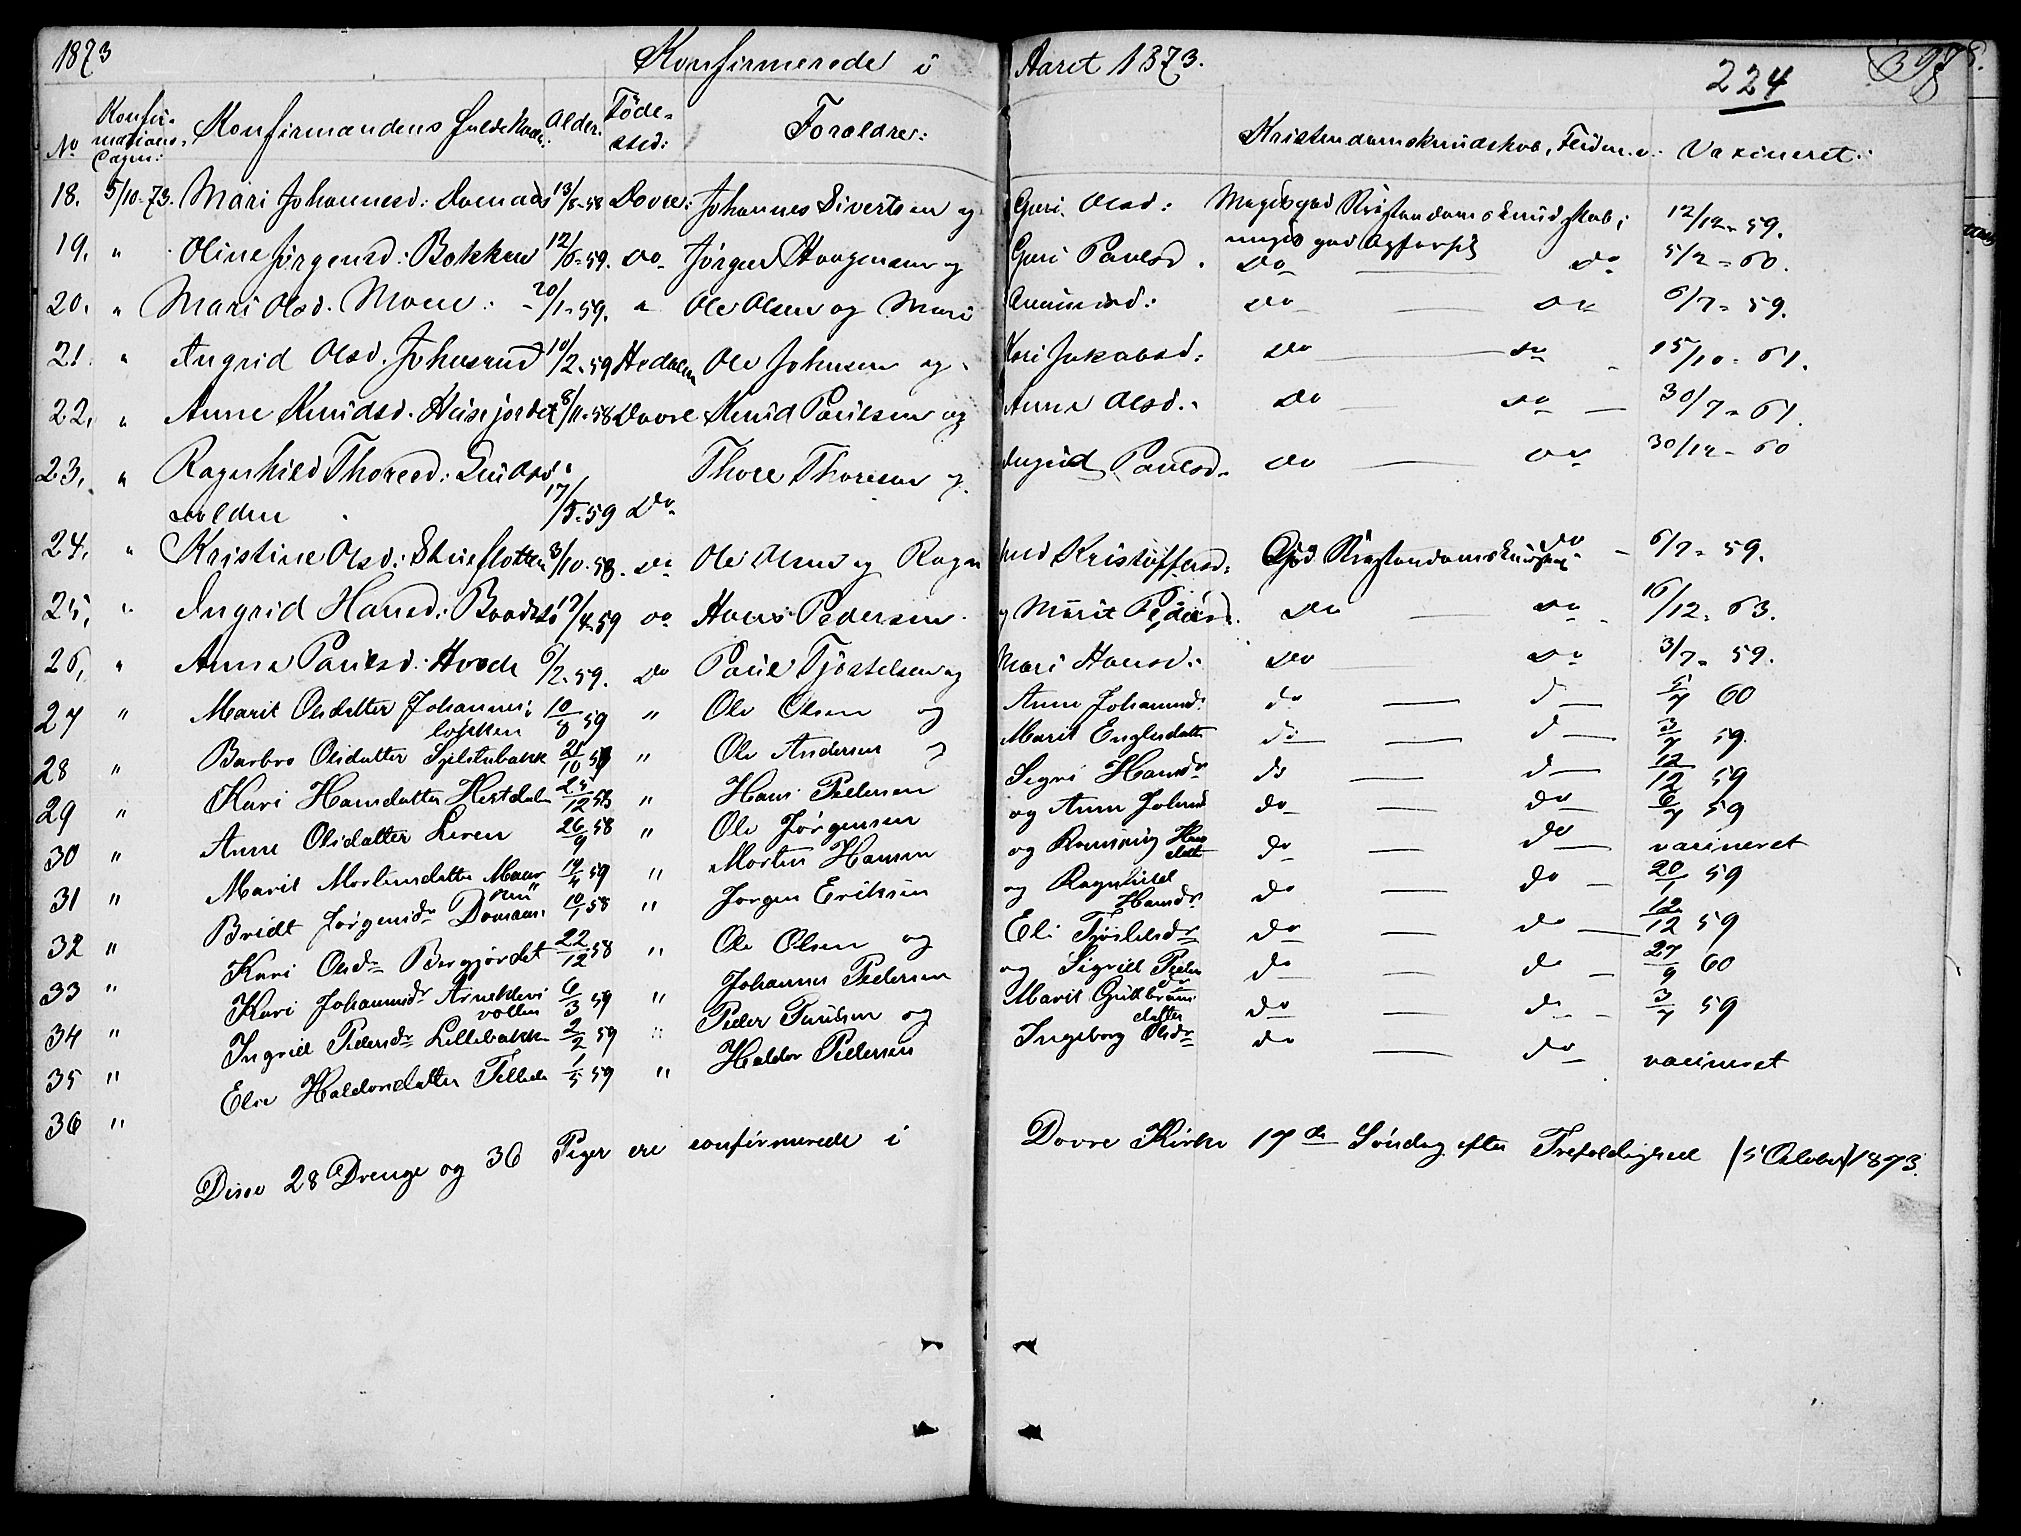 1873 Konfirmerede i Aaret 1873. 224
No Konfirmations-Dagen: Konfirmandens fulde Navn: Alder: Fødested: Forældre: Kristendomskundskab, Flid m.v: Vaxineret:
18. 5/10-73. Mari Johannesd: Domaas 13/8-58 Dovre: Johannes Sivertsen og Guri Olsd: Meget god Kristendomskundskab; 12/12-59.
meget god Opførsel
19. " Oline Jørgensd: Bakken 12/6-59. Do Jørgen Haagensen og Guri Paulsd. Do — Do 5/2-60.
20. " Mari Olsd. Moen: 20/1-59. " Ole Olsen og Mari Do — Do 6/7-59.
21. " Ingrid Olsd. Johnsrud 10/2-59 Hedalen Ole Johnsen og Kari Jakobsd: Do — Do 15/10-61.
22. " Anne Knudsd. Husejordet 8/11-58 Dovre Knud Paulsen og Anne Olsd. Do — Do — 30/7-61.
23. " Ragnhild Thoresd: Thore Thoresen og Ingrid Paulsd. Do — Do 30/12-60
volden 17/5-59 Do
24. " Kristine Olsd: 3/10-58. Do Ole Olsen og Ragnhild Kristoffersd: God Kristendomskundskab Do 6/7-59.
25. " Ingrid Hansd: 17/4-59 Do Hans Pedersen og Marit Pedersd. Do — Do 16/12-63.
26. " Anne Paulsd: Hovde 6/2-59. Do Paul Tjøstelsen og Mari Hansd. Do — Do 3/7-59.
27 " Marit Olsdatter Johannes- 10/8 59 " Ole Olsen og Anne Johannsdr do — d— 5/7 60
løkken
28 " Barbro Olsdatter 21/10 58 " Ole Andersen Marit Englesdatt do — d— 3/7 59.
29 " Kari Hansdatter Hestdalen 25/12 58 " Hans Pedersen Sigri Hansdr do — d— 12/12 59
30 " Anne Olsdatter Leren 26/9 58 " Ole Jørgensen og Anne Johnsd do — do 6/7 59
31 " Marit Mortensdatter 14/4 59 " Morten Hansen og Rønnaug Hansdatt do — do vacineret
32 " Bridt Jørgensdr Domaas 10/1 58 " Jørgen Eriksen og Ragnhild Hansdr do — do — 20/1 59
33 " Kari Olsdr Bergjordet 22/12 58 " Ole Olsen og Eli Tjøstelsdr do — do — 12/12 59
34 " Kari Johannsdr 6/3 59 " Johannes Pedersen og Sigrid Pedersdr do — do — 27/9 60
vollen
35 " Ingrid Pedersdr Lillebakken 2/2 59 " Peder Paulsen og Marit Gudbrandsdatter do — d— 3/7 59
36 " Elie Haldorsdatter Tellede 1/5 59 " Haldor Pedersen Ingeborg Olsdr do — do vacineret
Disse 28 Drenge og 36 Piger ere confirmerede i Dovre Kirke 17de Søndag efter Trefoldighed (5 October) 1873.